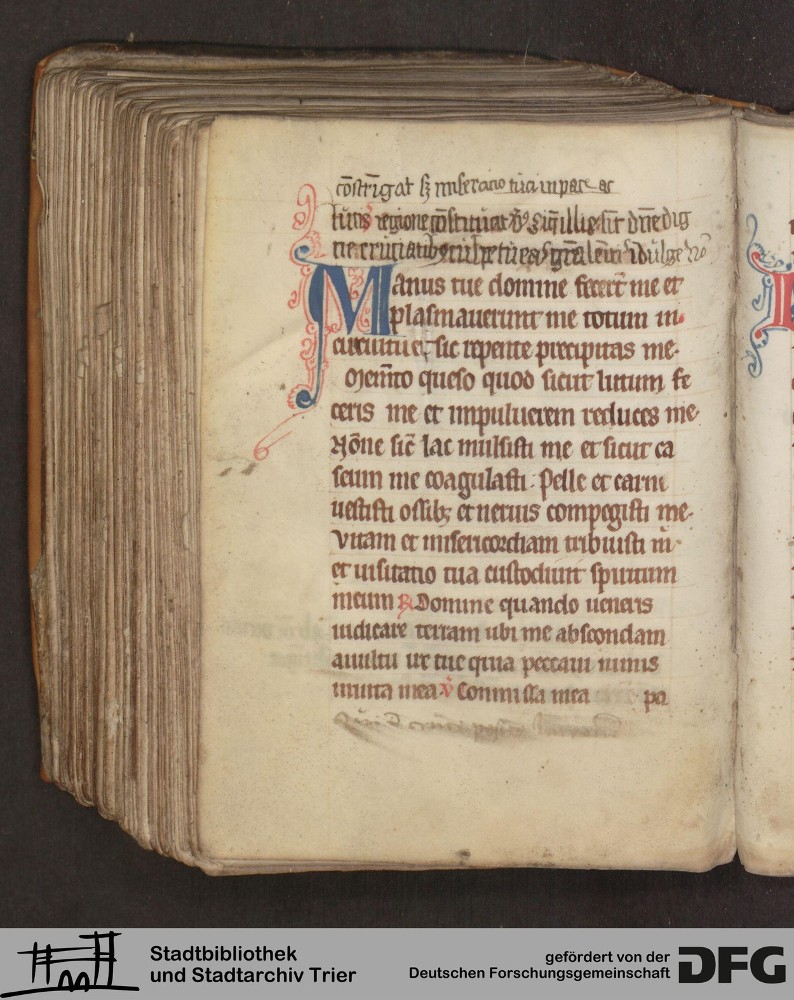 cōstrīgat sꝫ miseracio tua in pace ac
regione cōstituat
Manus tue domine fecert̄ me et
plasmauerunt me totum in
circuitu et sic repente precipitas me·
Memēto queso quod sicut lutum fe
ceris me et in puluerem reduces me·
Nōne sic̄ lac mulsisti me et sicut ca
seum me coagulasti· Pelle et carni
uestisti ossibꝫ et neruis compegisti me·
Vitam et misericordiam tribuisti m̄·
et uisitatio tua custodiuit spiritum
meum ℟ Domine quando ueneris
iudicare terram ubi me abscondam
a uultu ire tue quia peccaui nimis
in uita mea ℣ Commissa mea pa
Stadtbibliothek
und Stadtarchiv Trier
gefördert von der
Deutschen Forschungsgemeinschaft
DFG